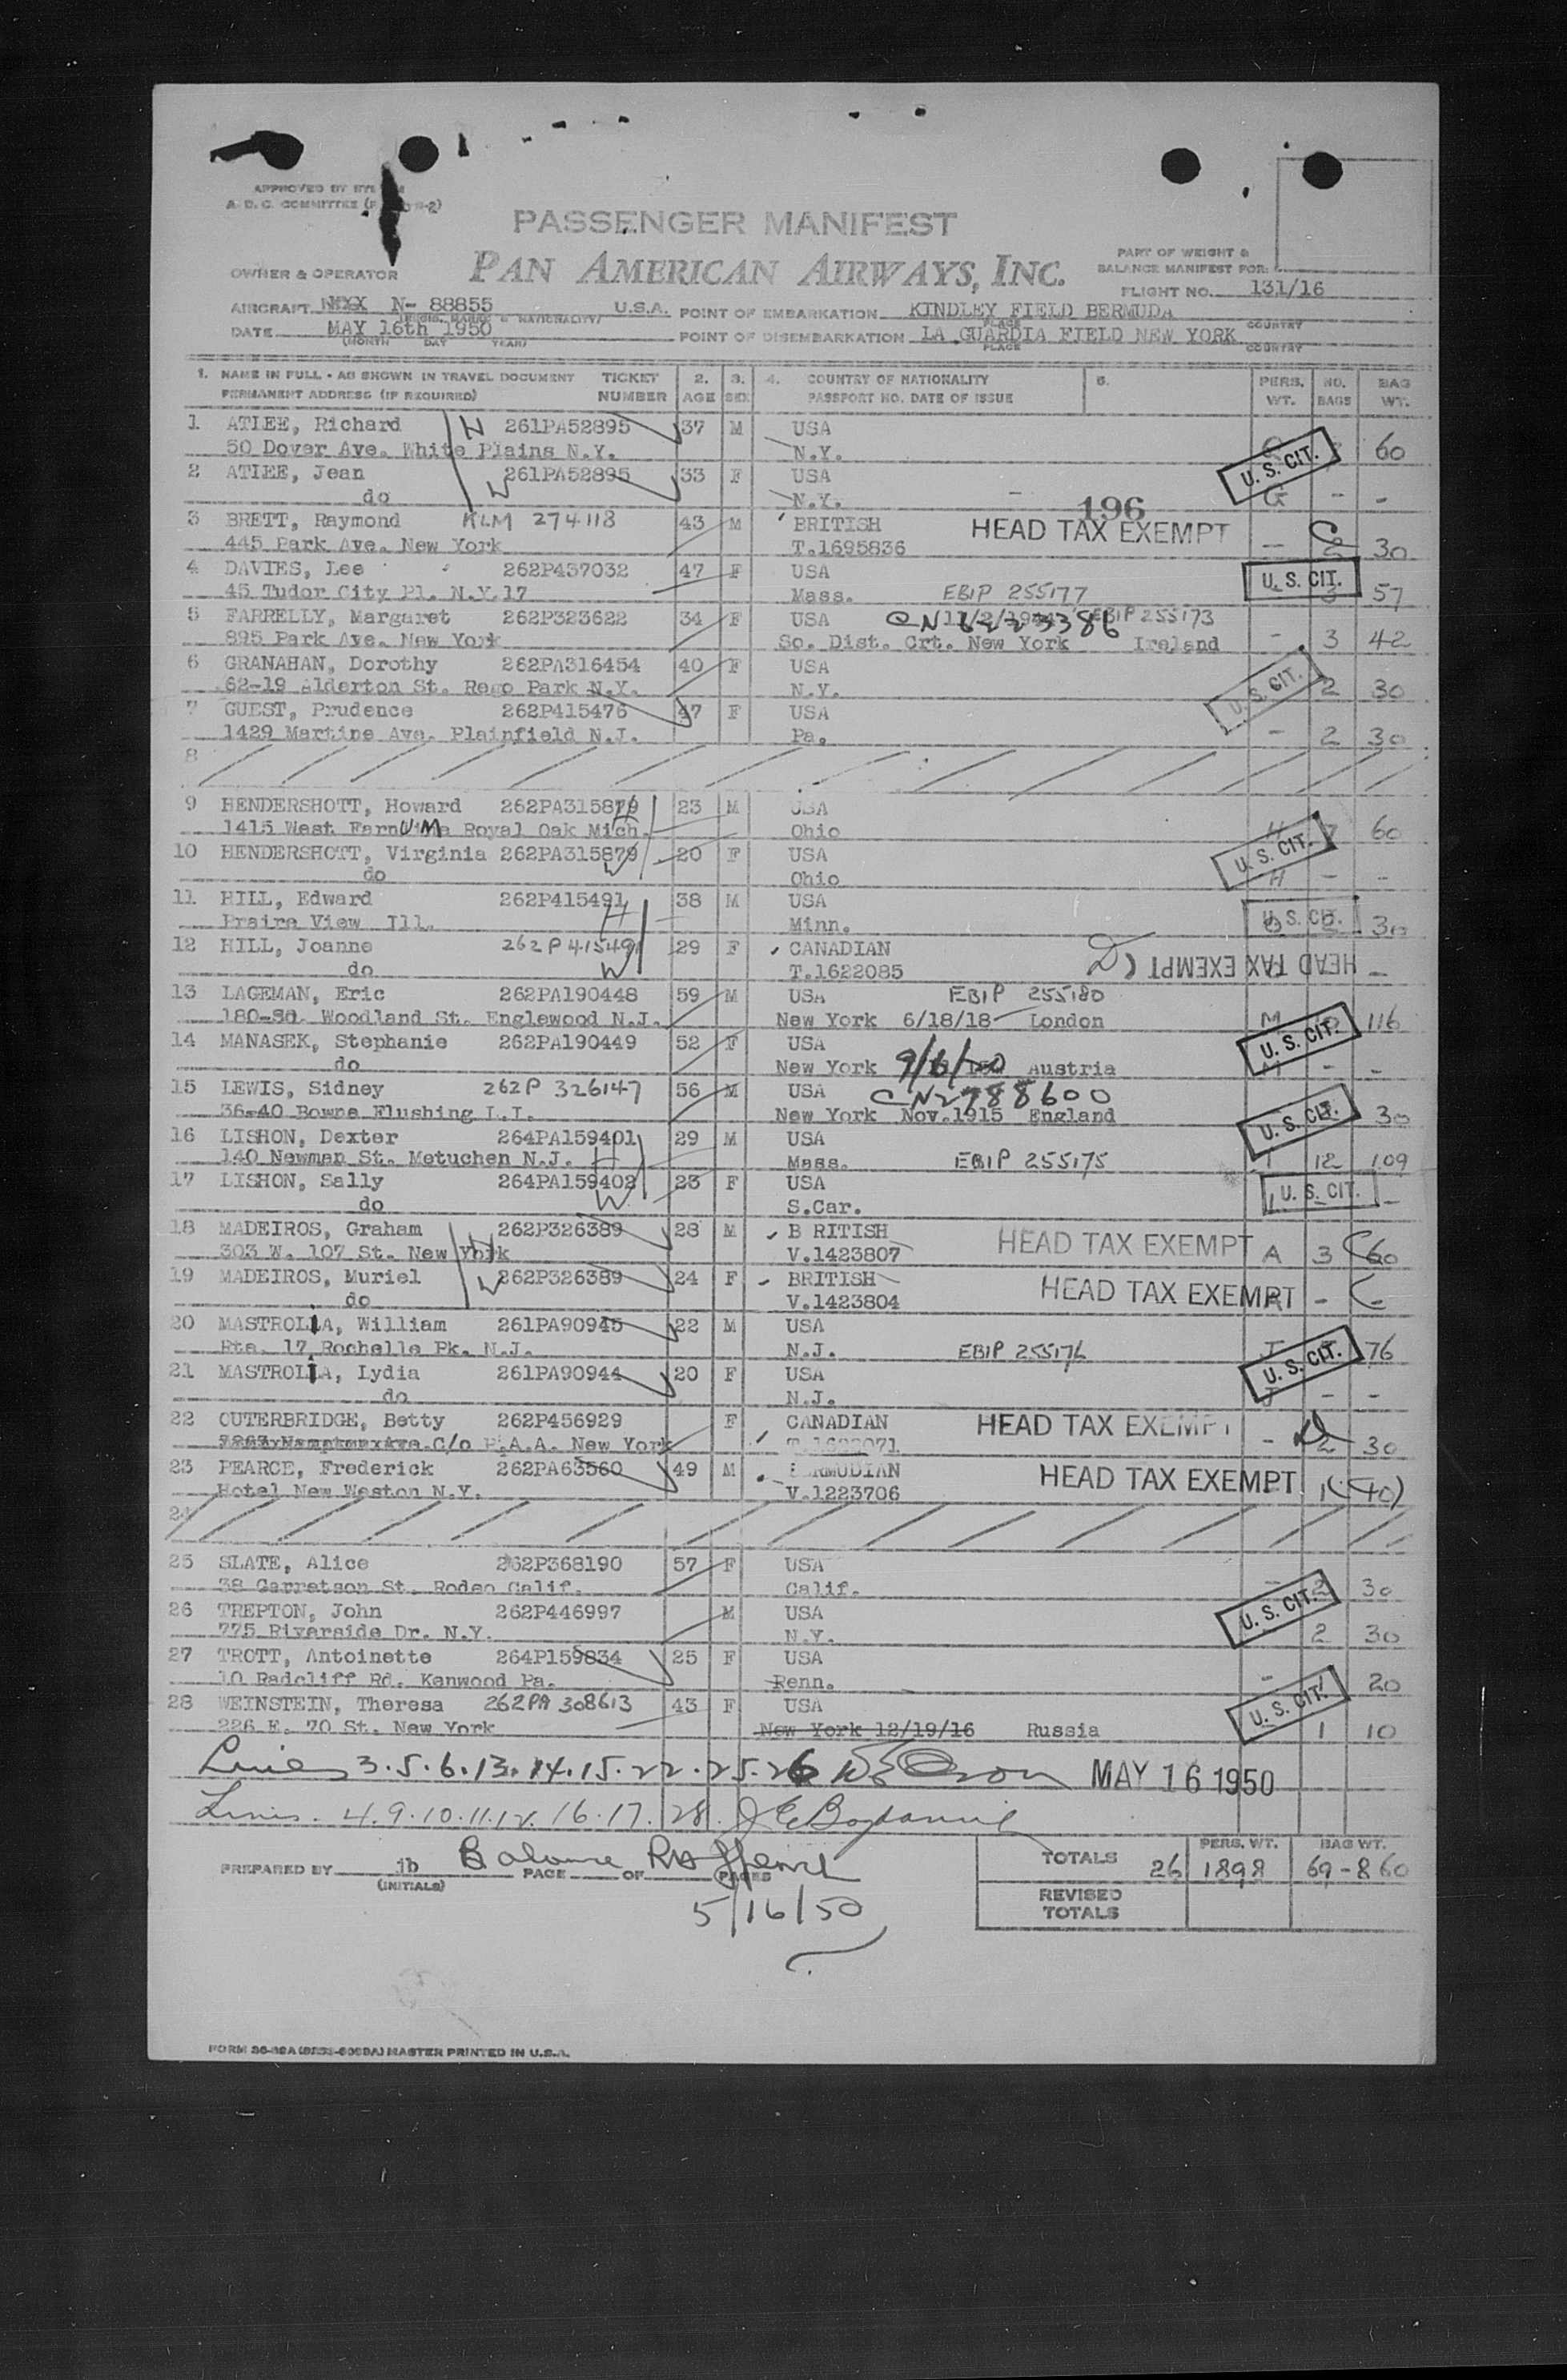 APPROVED BY
A. D. C. COMMITTEE
PASSENGER MANIFEST
PAN AMERICAN AIRWAYS, INC.
PART OF WEIGHT &
BALANCE MANIFEST FOR:
OWNER & OPERATOR
FLIGHT NO. 131/16
AIRCRAFT N- 88855 U.S.A. POINT OF EMBARKATION KINDLEY FIELD BERMUDA
PLACE COUNTRY
DATE MAY 16th 1950 POINT OF DISEMBARKATION LA GUARDIA FIELD NEW YORK
(MONTH DAY YEAR) PLACE COUNTRY
1. NAME IN FULL - AS SHOWN IN TRAVEL DOCUMENT TICKET 2. 3. 4. COUNTRY OF NATIONALITY 5. PERS. NO. BAG
PERMANENT ADDRESS (IF REQUIRED) NUMBER AGE SEX PASSPORT NO. DATE OF ISSUE WT. BAGS WT.
1 ATLEE, Richard H 261PA52895 37 M USA
50 Dover Ave. White Plains N.Y. N.Y. U. S. CIT. 60
2 ATLEE, Jean 261PA52895 33 F USA
do W N.Y. G - -
196
3 BRETT, Raymond KLM 274118 43 M BRITISH HEAD TAX EXEMPT
445 Park Ave. New York T.1695836 - 2 30
4 DAVIES, Lee 262P437032 47 F USA U. S. CIT.
45 Tudor City Pl. N.Y.17 Mass. EBIP 255177 3 57
5 FARRELLY, Margaret 262P323622 34 F USA CN EBIP 255173
895 Park Ave. New York So. Dist. Crt. New York Ireland - 3 42
6 GRANAHAN, Dorothy 262PA316454 40 F USA
62-19 Alderton St. Rego Park N.Y. N.Y. U. S. CIT. 2 30
7 GUEST, Prudence 262P415476 47 F USA
1429 Martine Ave. Plainfield N.J. Pa. - 2 30
8
9 HENDERSHOTT, Howard 262PA315879 23 M USA
1415 West Farnum Royal Oak Mich. H Ohio H 60
10 HENDERSHOTT, Virginia 262PA315879 20 F USA U. S. CIT.
do W Ohio H - -
11 HILL, Edward 262P415491 38 M USA
Praire View Ill. H Minn. U. S. CIT. 30
12 HILL, Joanne 262P415491 29 F CANADIAN
do W T.1622085 D HEAD TAX EXEMPT -
13 LAGEMAN, Eric 262PA190448 59 M USA EBIP 255180
180-Sd. Woodland St. Englewood N.J. New York 6/18/18 London M 10 116
14 MANASEK, Stephanie 262PA190449 52 F USA U. S. CIT.
do New York Austria - -
15 LEWIS, Sidney 262P 326147 56 M USA CN2788600
36-40 Bowne Flushing L.I. New York Nov.1915 England U. S. CIT. 30
16 LISHON, Dexter 264PA159401 29 M USA
140 Newman St. Metuchen N.J. H Mass. EBIP 255175 12 109
17 LISHON, Sally 264PA159402 23 F USA
do W S.Car. U. S. CIT. -
18 MADEIROS, Graham 262P326389 28 M B RITISH HEAD TAX EXEMPT
303 W. 107 St. New York H V.1423807 A 3 60
19 MADEIROS, Muriel 262P326389 24 F BRITISH HEAD TAX EXEMPT
do W V.1423804 - -
20 MASTROLIA, William 261PA90945 22 M USA
Rte. 17 Rochelle Pk. N.J. N.J. EBIP 255176 J U. S. CIT. 76
21 MASTROLIA, Lydia 261PA90944 20 F USA
do N.J. J - -
22 OUTERBRIDGE, Betty 262P456929 F CANADIAN HEAD TAX EXEMPT
C/o P.A.A. New York - 2 30
23 PEARCE, Frederick 262PA63560 49 M BERMUDIAN HEAD TAX EXEMPT
Hotel New Weston N.Y. V.1223706 1 (40)
24
25 SLATE, Alice 262P368190 57 F USA
38 Garretson St. Rodeo Calif. Calif. - 2 30
26 TREPTON, John 262P446997 M USA U. S. CIT.
775 Riverside Dr. N.Y. N.Y. 2 30
27 TROTT, Antoinette 264P159834 25 F USA
10 Radcliff Rd. Kenwood Pa. Penn. - 20
28 WEINSTEIN, Theresa 262PA 308613 43 F USA U. S. CIT.
226 E. 70 St. New York New York 12/19/16 Russia 1 10
Lines 3.5.6.13.14.15.22.25.26 MAY 16 1950
Lines. 4.9.10.11.12.16.17.28.
PREPARED BY jb Balance PAGE OF PAGES
(INITIALS)
5/16/50
PERS. WT. BAG WT.
TOTALS 26 1898 69-860
REVISED
TOTALS
MASTER PRINTED IN U.S.A.